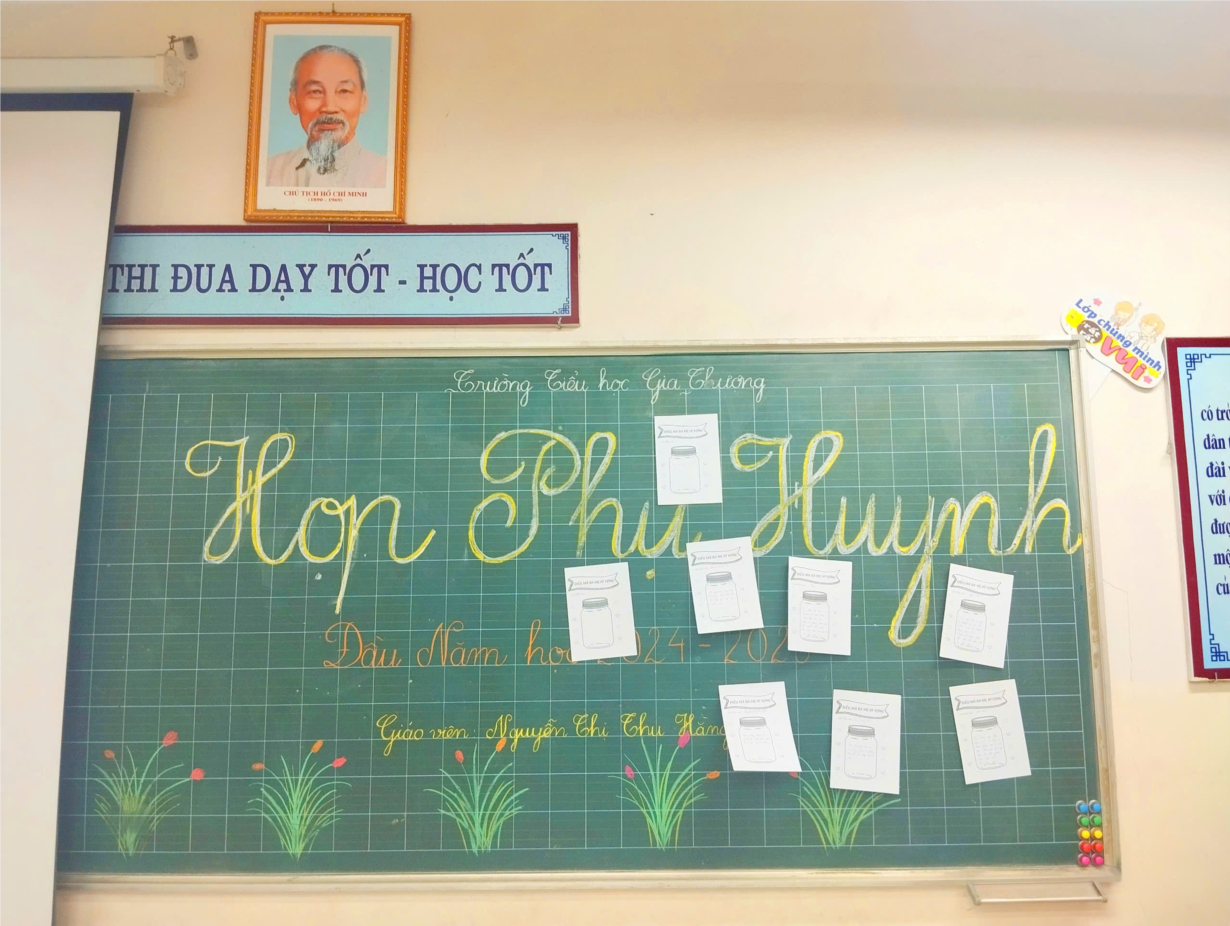 CHỦ TỊCH HỒ CHÍ MINH
(1890 - 1969)
THI ĐUA DẠY TỐT - HỌC TỐT
Lớp chúng mình
VUI
Trường Tiểu học Gia Thượng
Họp Phụ Huynh
Đầu Năm học 2024 - 202
Giáo viên: Nguyễn Thị Thu Hằng
có
dân
đài
với
đượ
mộ
củ